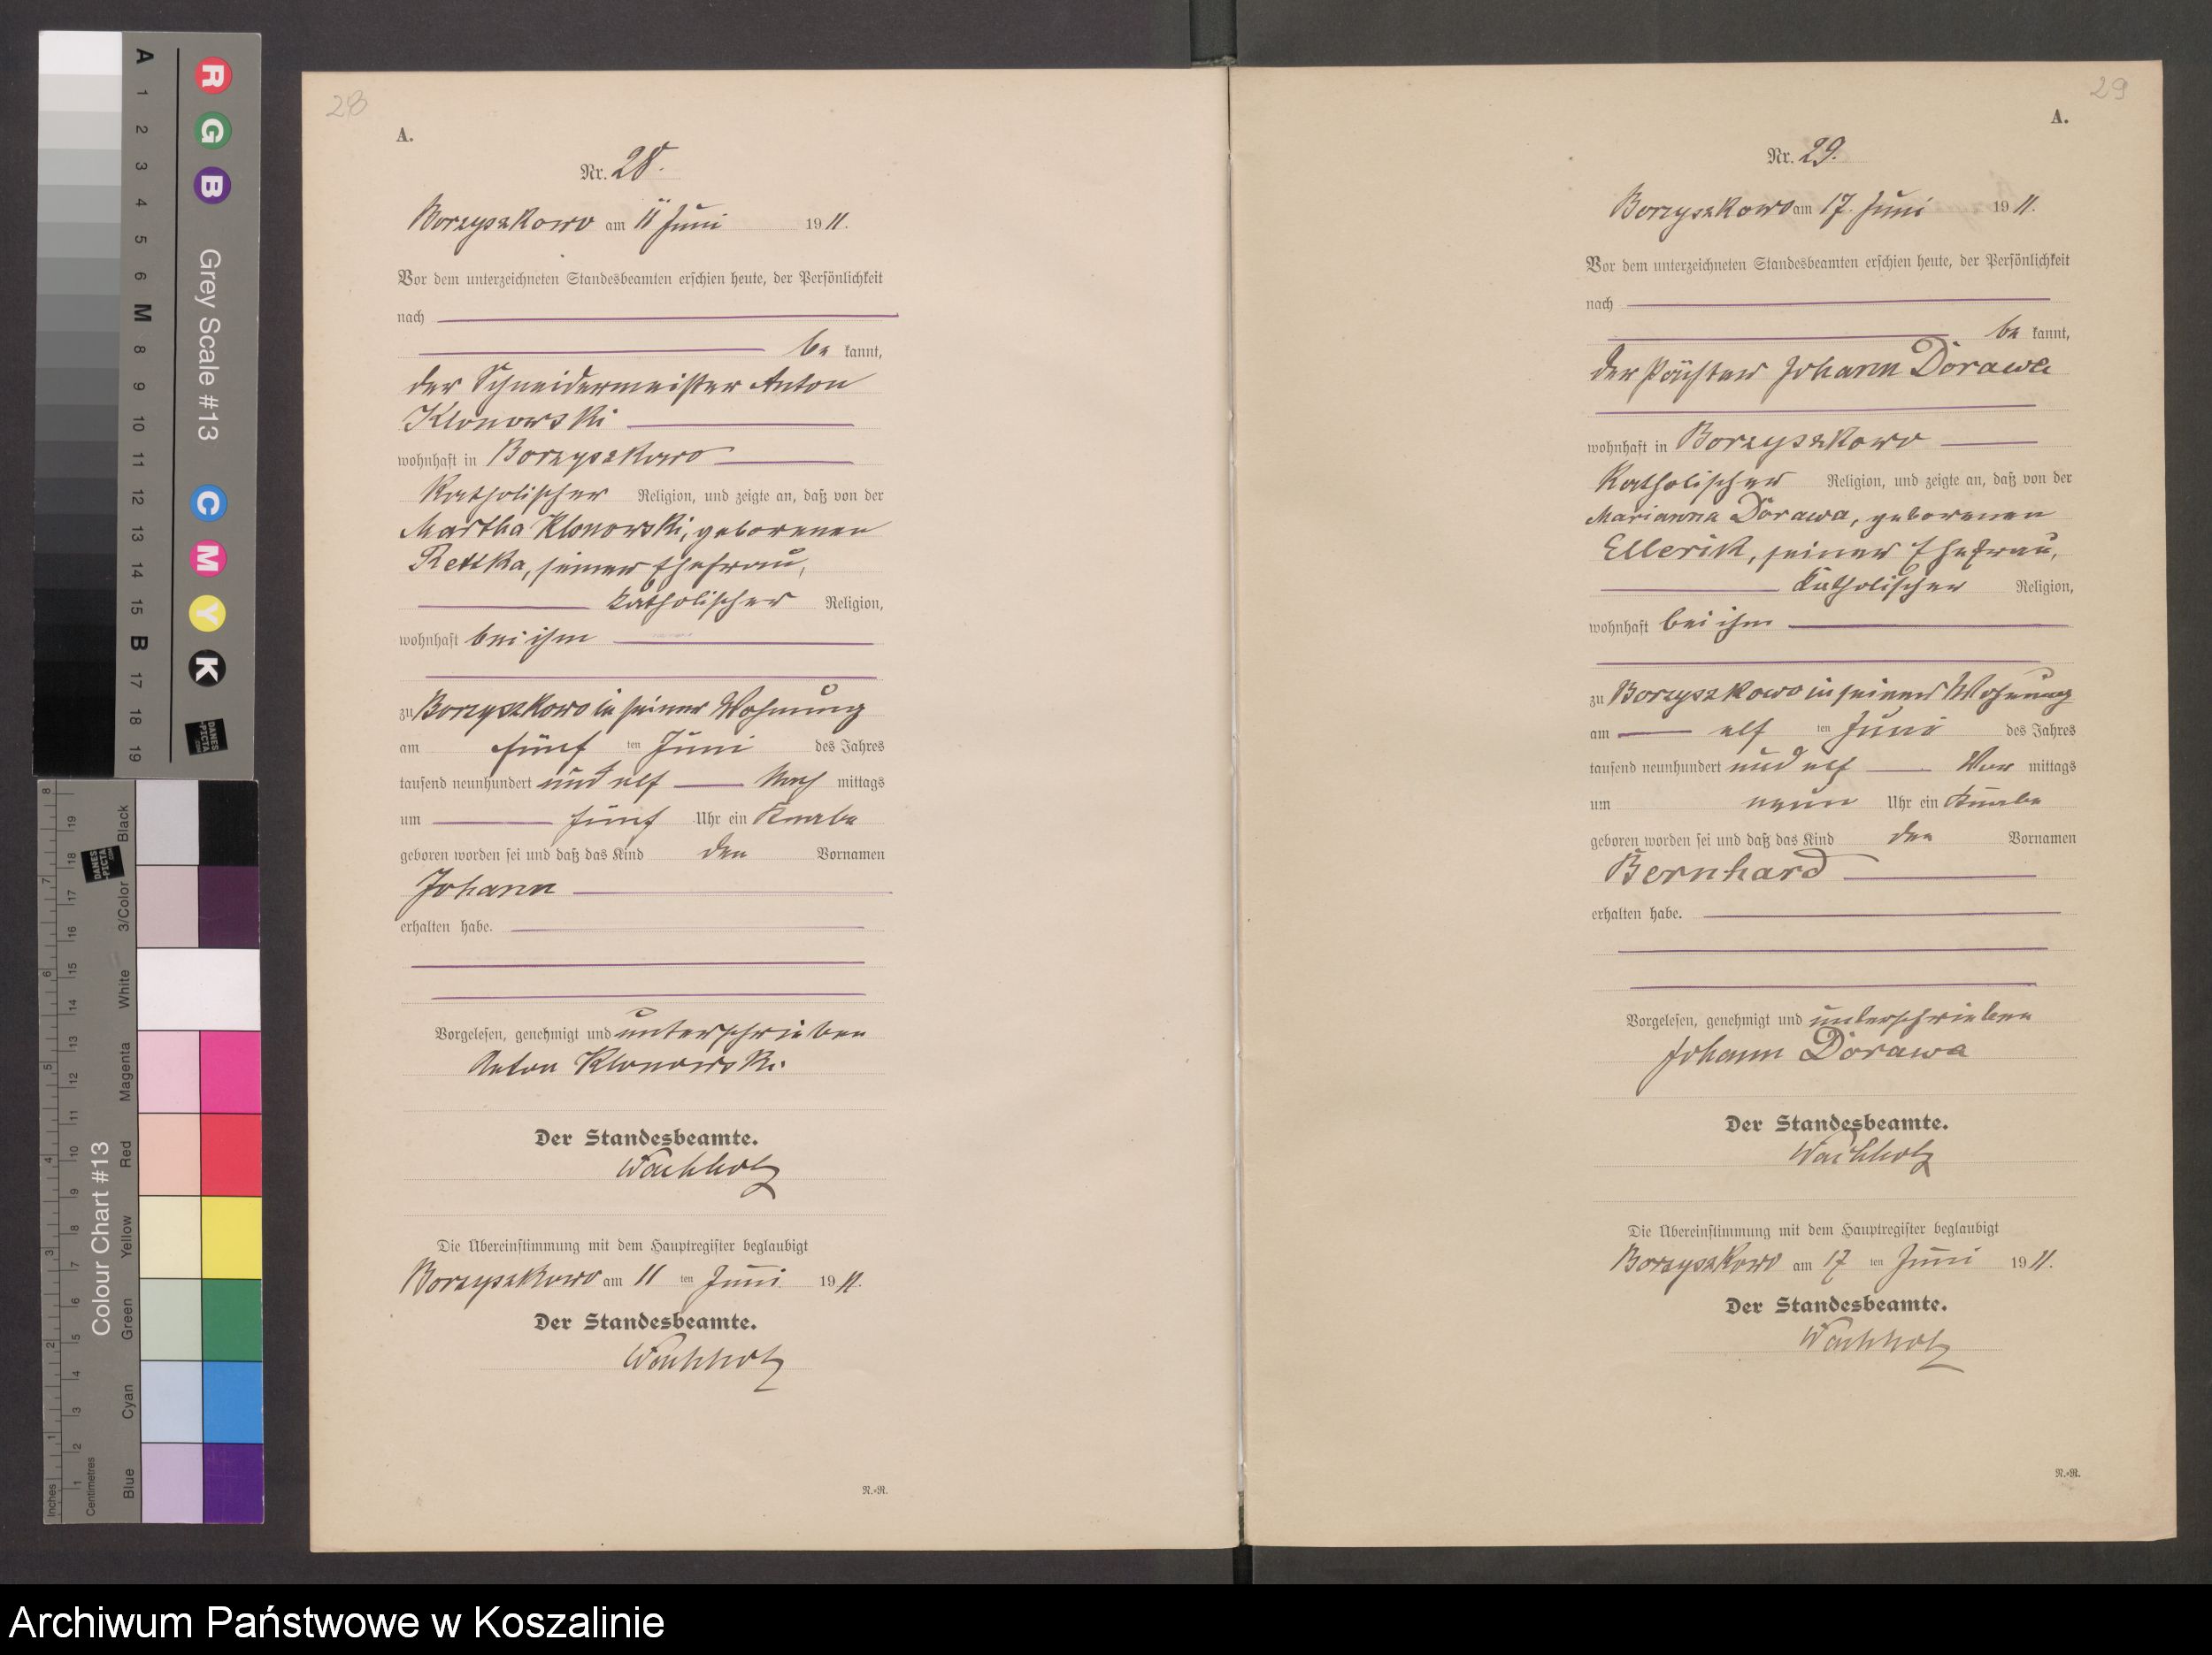 28
A.
Nr. 28.
Borzyszkowo am 11 Juni 1911.
Vor dem unterzeichneten Standesbeamten erschien heute, der Persönlichkeit
nach
be kannt,
der Schneidermeister Anton
Klonowski
wohnhaft in Borzyszkowo
katholischer Religion, und zeigte an, daß von der
Martha Klonowski, geborenen
seiner Ehefrau,
katholischer Religion,
wohnhaft bei ihm
zu Borzyszkowo in seiner Wohnung
am fünf ten Juni des Jahres
tausend neunhundert und elf Nach mittags
um fünf Uhr ein Knabe
geboren worden sei und daß das Kind den Vornamen
Johann
erhalten habe.
Vorgelesen, genehmigt und unterschrieben
Anton Klonowski.
Der Standesbeamte.
Wachholz
Die Übereinstimmung mit dem Hauptregister beglaubigt
Borzyszkowo am 11 ten Juni 1911.
Der Standesbeamte.
Wachholz
N.-R.
29
A.
Nr. 29.
Borzyszkowo am 17. Juni 1911.
Vor dem unterzeichneten Standesbeamten erschien heute, der Persönlichkeit
nach
be kannt,
der Pächter Johann Dorawa
wohnhaft in Borzyszkowo
katholischer Religion, und zeigte an, daß von der
Marianna Dorawa, geborenen
Ellerik, seiner Ehefrau,
katholischer Religion,
wohnhaft bei ihm
zu Borzyszkowo in seiner Wohnung
am elf ten Juni des Jahres
tausend neunhundert und elf Vor mittags
um neun Uhr ein Knabe
geboren worden sei und daß das Kind den Vornamen
Bernhard
erhalten habe.
Vorgelesen, genehmigt und unterschrieben
Johann Dorawa
Der Standesbeamte.
Wachholz
Die Übereinstimmung mit dem Hauptregister beglaubigt
Borzyszkowo am 17 ten Juni 1911.
Der Standesbeamte.
Wachholz
N.-R.
A 1 2 3 4 5 6 M 8 9 10 11 12 13 14 15 B 17 18 19
R G B
Grey Scale #13
C M Y K
DANES
-PICTA
.COM
Colour Chart #13
Blue Cyan Green Yellow Red Magenta White 3/Color Black
Inches 1 2 3 4 5 6 7 8
Centimetres 1 2 3 4 5 6 7 8 9 10 11 12 13 14 15 16 17 18 19
DANES
-PICTA
.COM
Archiwum Państwowe w Koszalinie